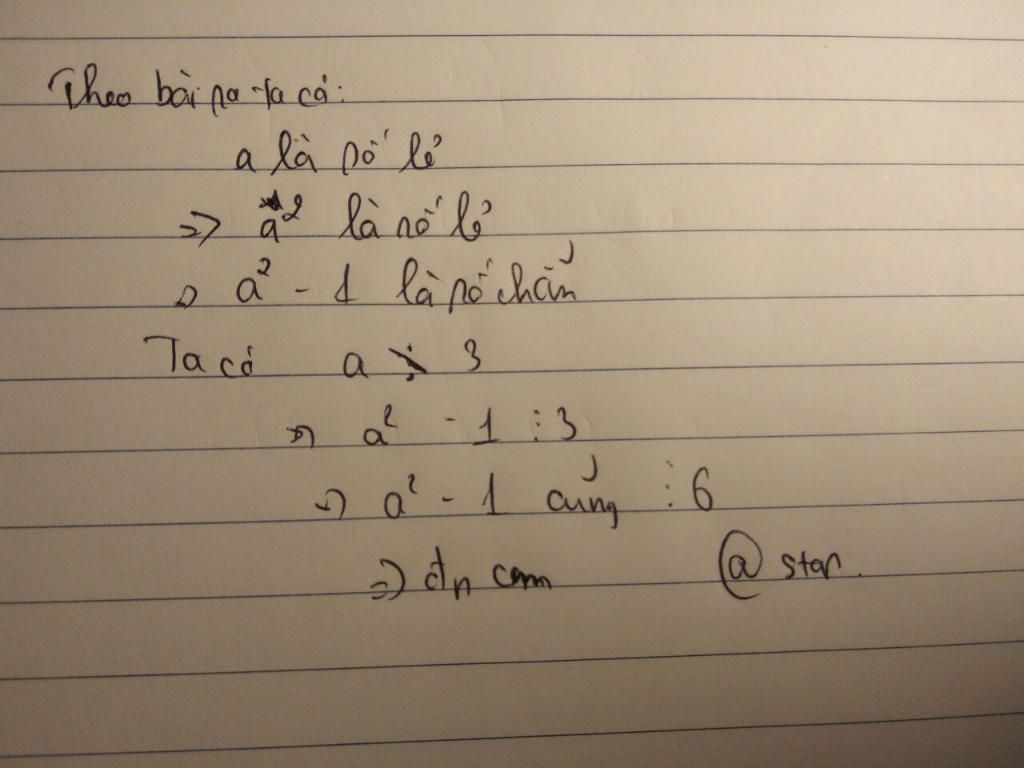 Theo bài ra ta có:
a là số lẻ
=> a² là số lẻ
=> a² - 1 là số chẵn
Ta có a ⋮̸ 3
=> a² - 1 ⋮ 3
=> a² - 1 cũng ⋮ 6
=> đp cm @ star.